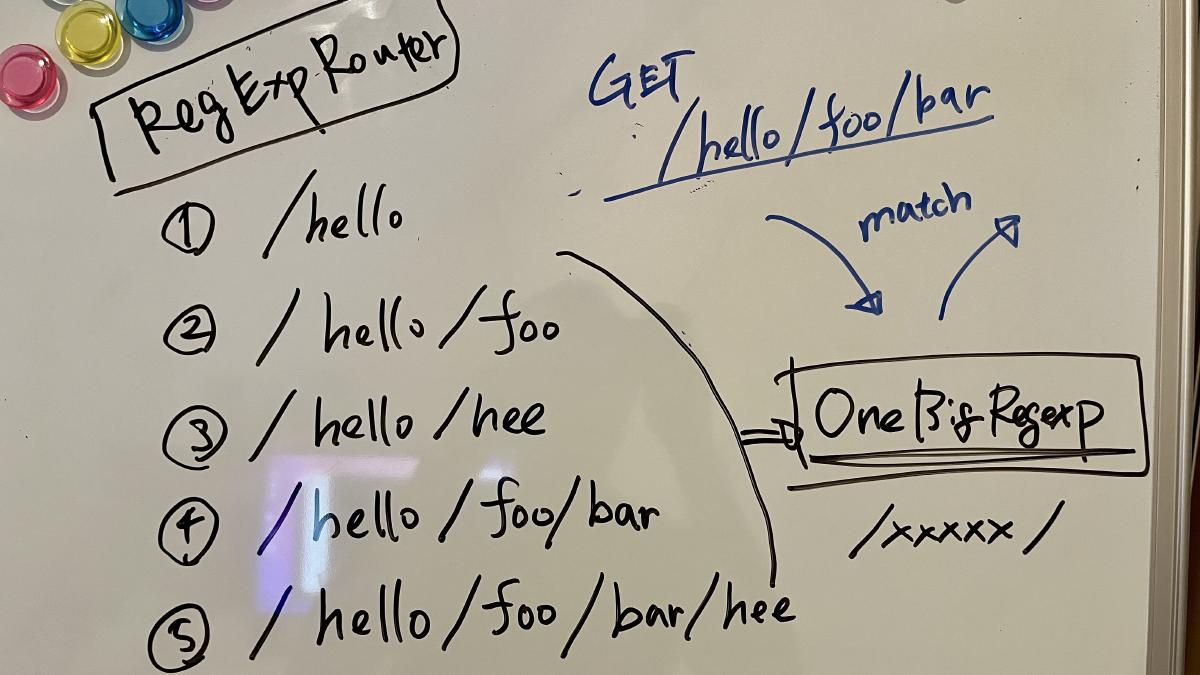 RegExpRouter
① /hello
② /hello/foo
③ /hello/hee
④ /hello/foo/bar
⑤ /hello/foo/bar/hee
GET
/hello/foo/bar
match
OneBigRegexp
/xxxxx/